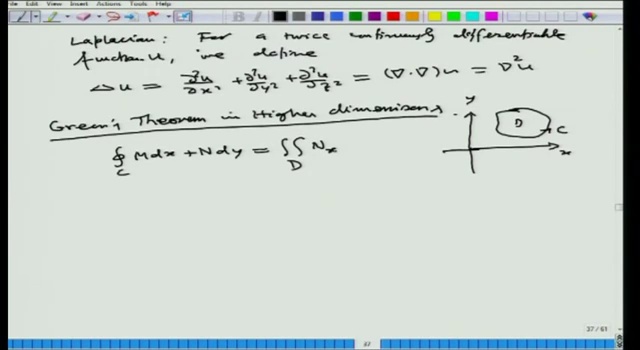 File Edit View Insert Actions Tools Help
Laplacian: For a twice continuously differentiable
function u, we define
Δu = ∂²u/∂x² + ∂²u/∂y² + ∂²u/∂z² = (∇·∇)u = ∇²u
Green's Theorem in Higher dimensions
∮_C Mdx + Ndy = ∬_D N_x
y
D
C
x
37 / 61
37